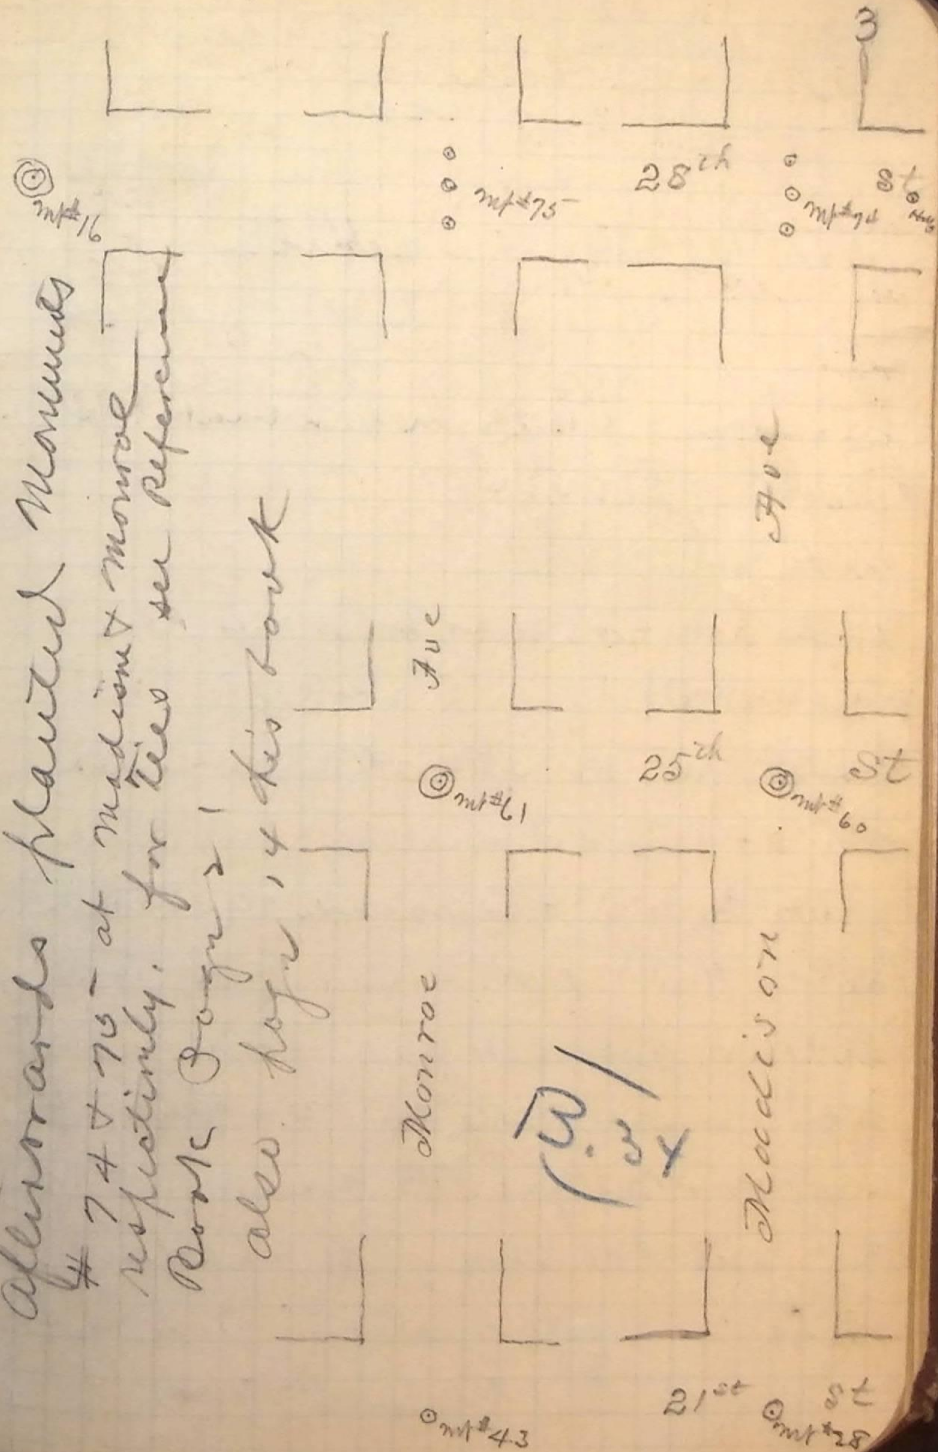 3
Afterwards planted Monuments
# 74 & 75 at Madison & Monroe
respectively. for Ties see Reference
Book Page 2
also page 14 this book
Mt# 16
Mt#75
28th
St
Mt#74
Monroe Ave
25th
St
Mt#17
Mt#60
Madison Ave
21st
St
Mt#43
Mt#28